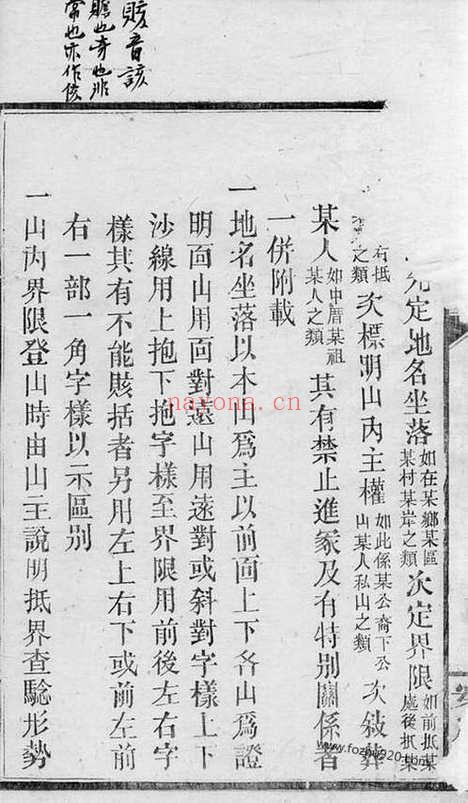 賅音該
贍也奇也非
常也亦作侅
先定地名坐落如在某鄉某區某村某岸之類次定界限如前抵某處後抵某
右抵之類次標明山內主權如此係某公裔下公山某人私山之類次敍葬
某人如中厝某祖某人之類其有禁止進冢及有特別關係者
一併附載
一地名坐落以本山爲主以前面上下各山爲證
明面山用面對遠山用遠對或斜對字樣上下
沙線用上抱下抱字樣至界限用前後左右字
樣其有不能賅括者另用左上右下或前左前
右一部一角字樣以示區別
一山內界限登山時由山主說明抵界查驗形勢
nayona.cn
www.fozhu920.com